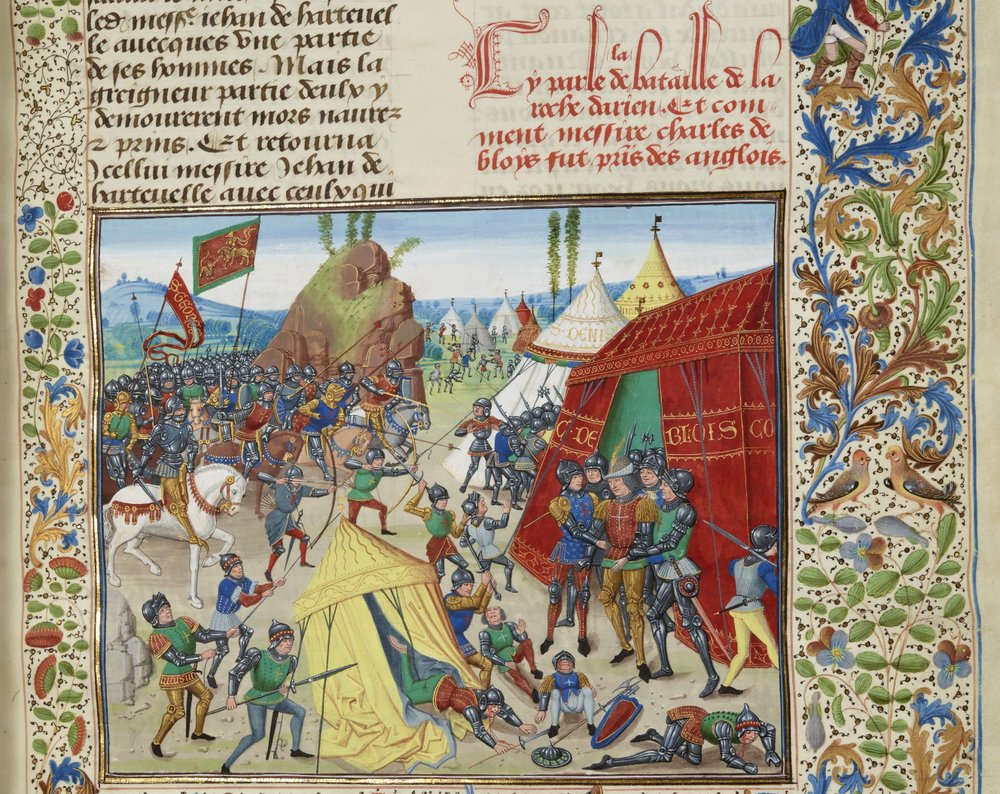 led messe iehan de harteuel
le auecques vne partie
de ses hommes. Mais la
greigneur partie deulx y
demourerent mors naurez
z prins. Et retourna
icellui messire Jehan de
harteuelle auec ceulx qui
la
Cy parle de bataille de la
roche darien. Et com
ment messire charles de
bloys fut prins des anglois.
DENIS
C DE BLOIS CO